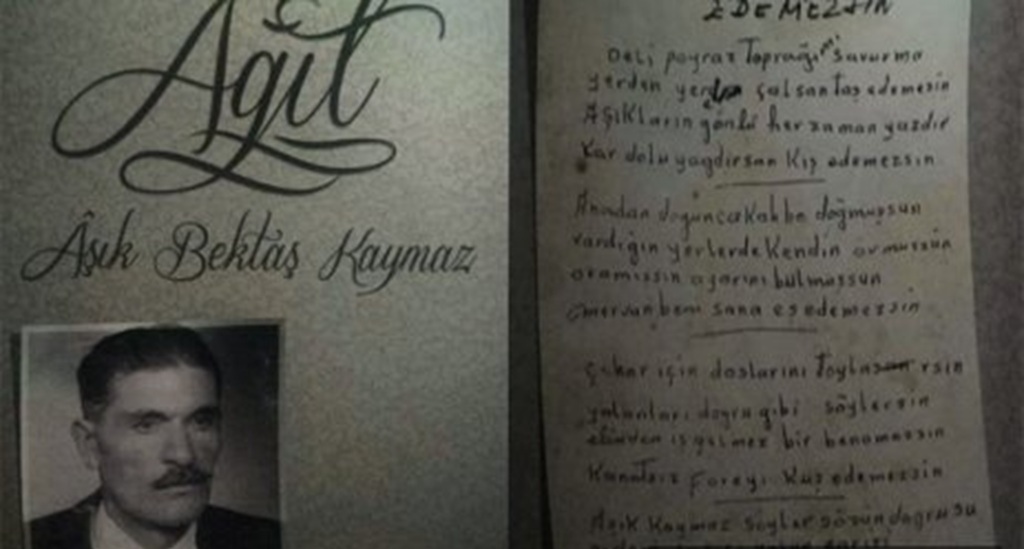 Ağıt
Âşık Bektâş Kaymaz
EDEMEZSİN
Deli poyraz Toprağı savurma
yerden yere çalsan taş edemesin
Aşıkların gönlü her zaman yazdır
Kar dolu yağdırsan Kış edemezsin
Anadan doğunca Kahbe doğmuşsun
vardığın yerlerde Kendin övmüssün
bulmussun
mervan beni sana eş edemezsin
için doslarını Toylasan
yalanları doğru gibi söylersin
elinden iş gelmez bir
Kanatsız Kuş edemezsin
Aşık Kaymaz söyler sözün doğrusu